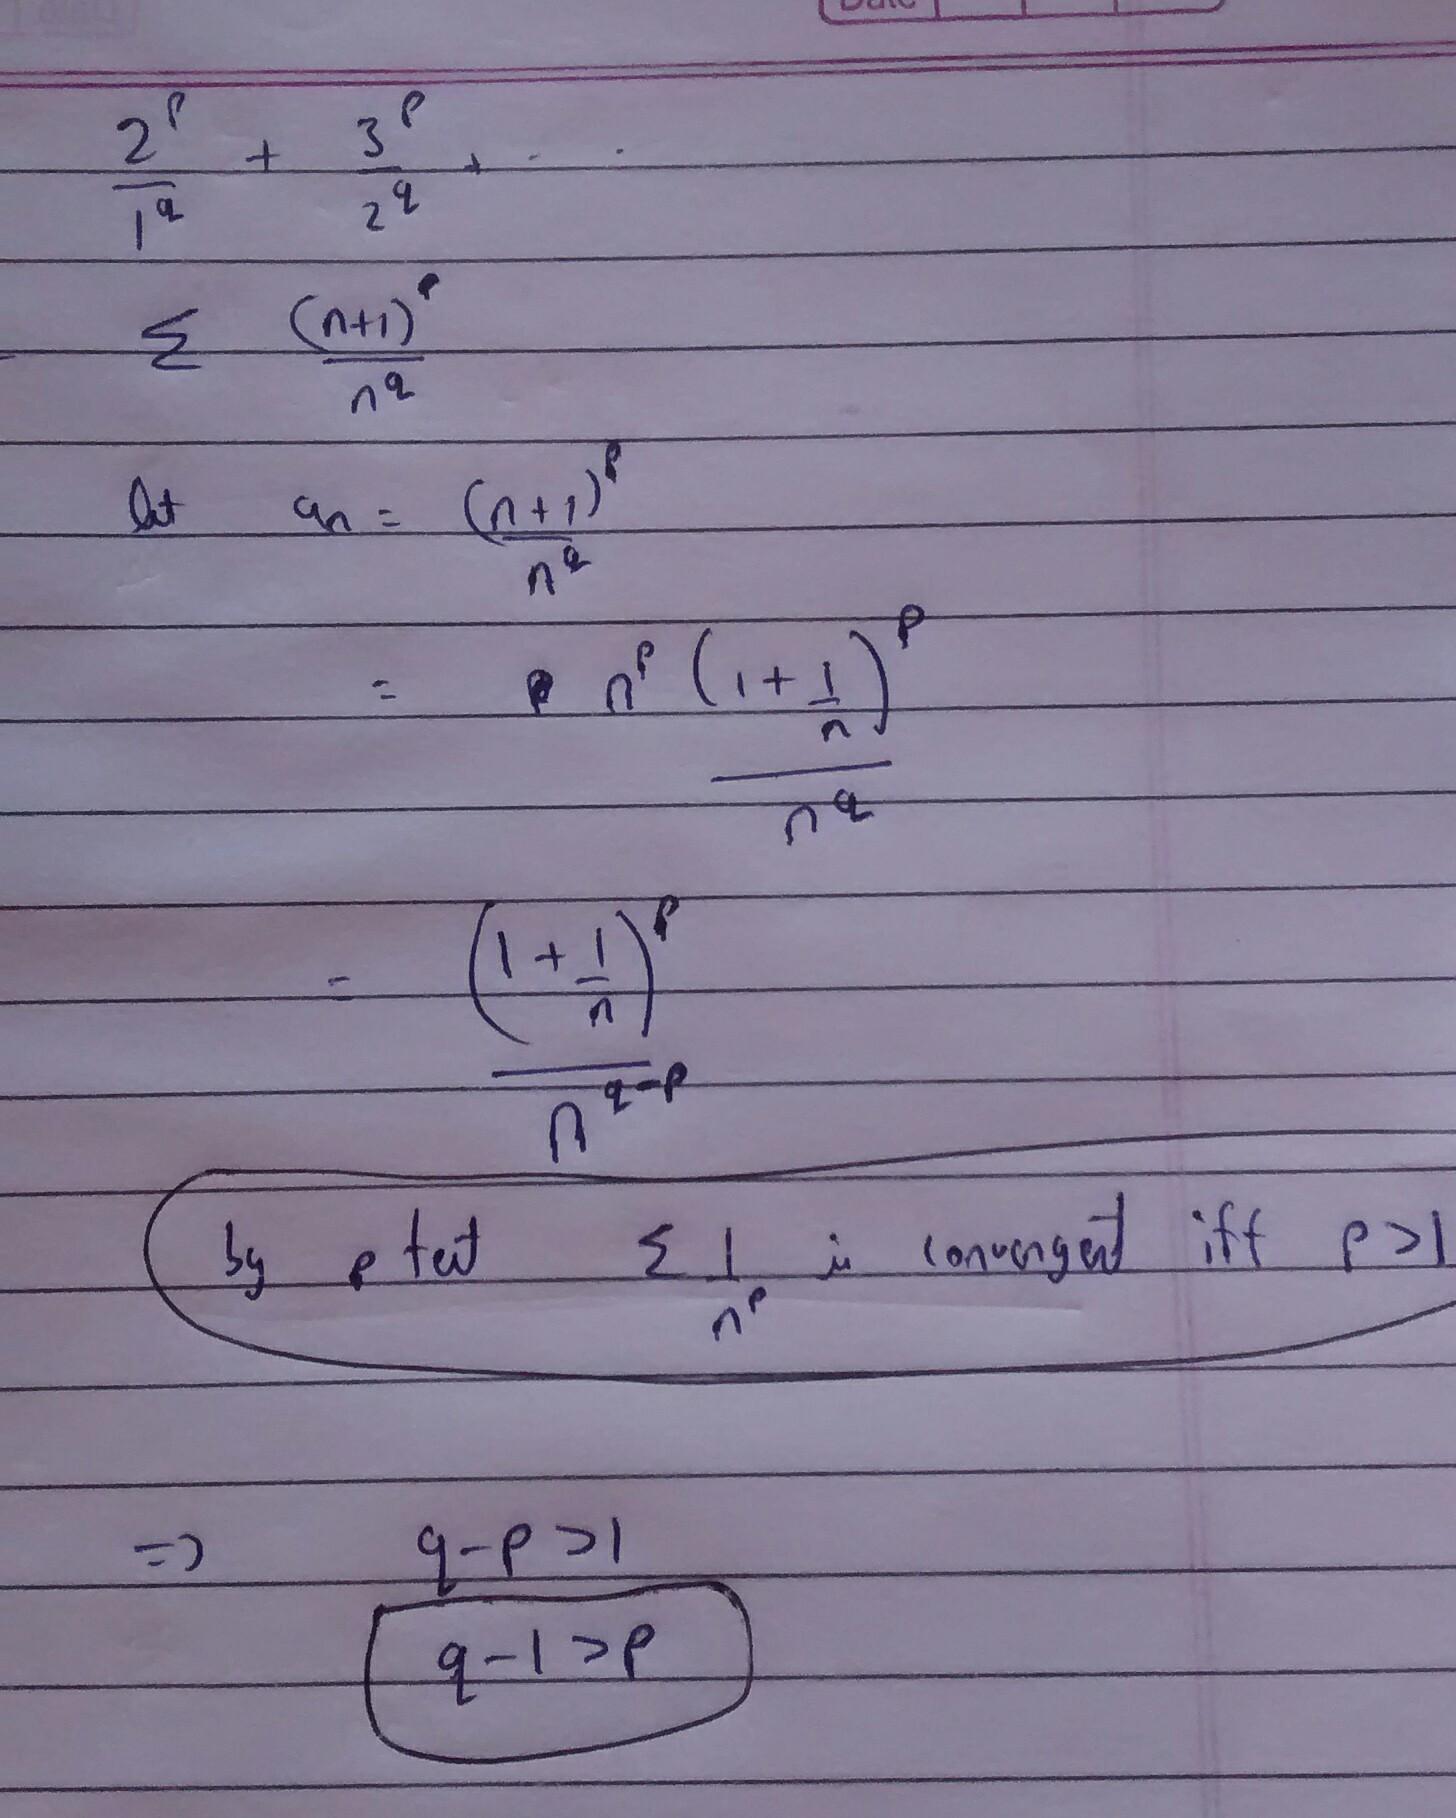 Date
2^p/1^q + 3^p/2^q + . .
Σ (n+1)^p/n^q
let an = (n+1)^p/n^q
= n^p (1 + 1/n)^p/n^q
= (1 + 1/n)^p/n^(q-p)
by p test Σ 1/n^p is convergent iff p>1
=> q-p>1
q-1>p